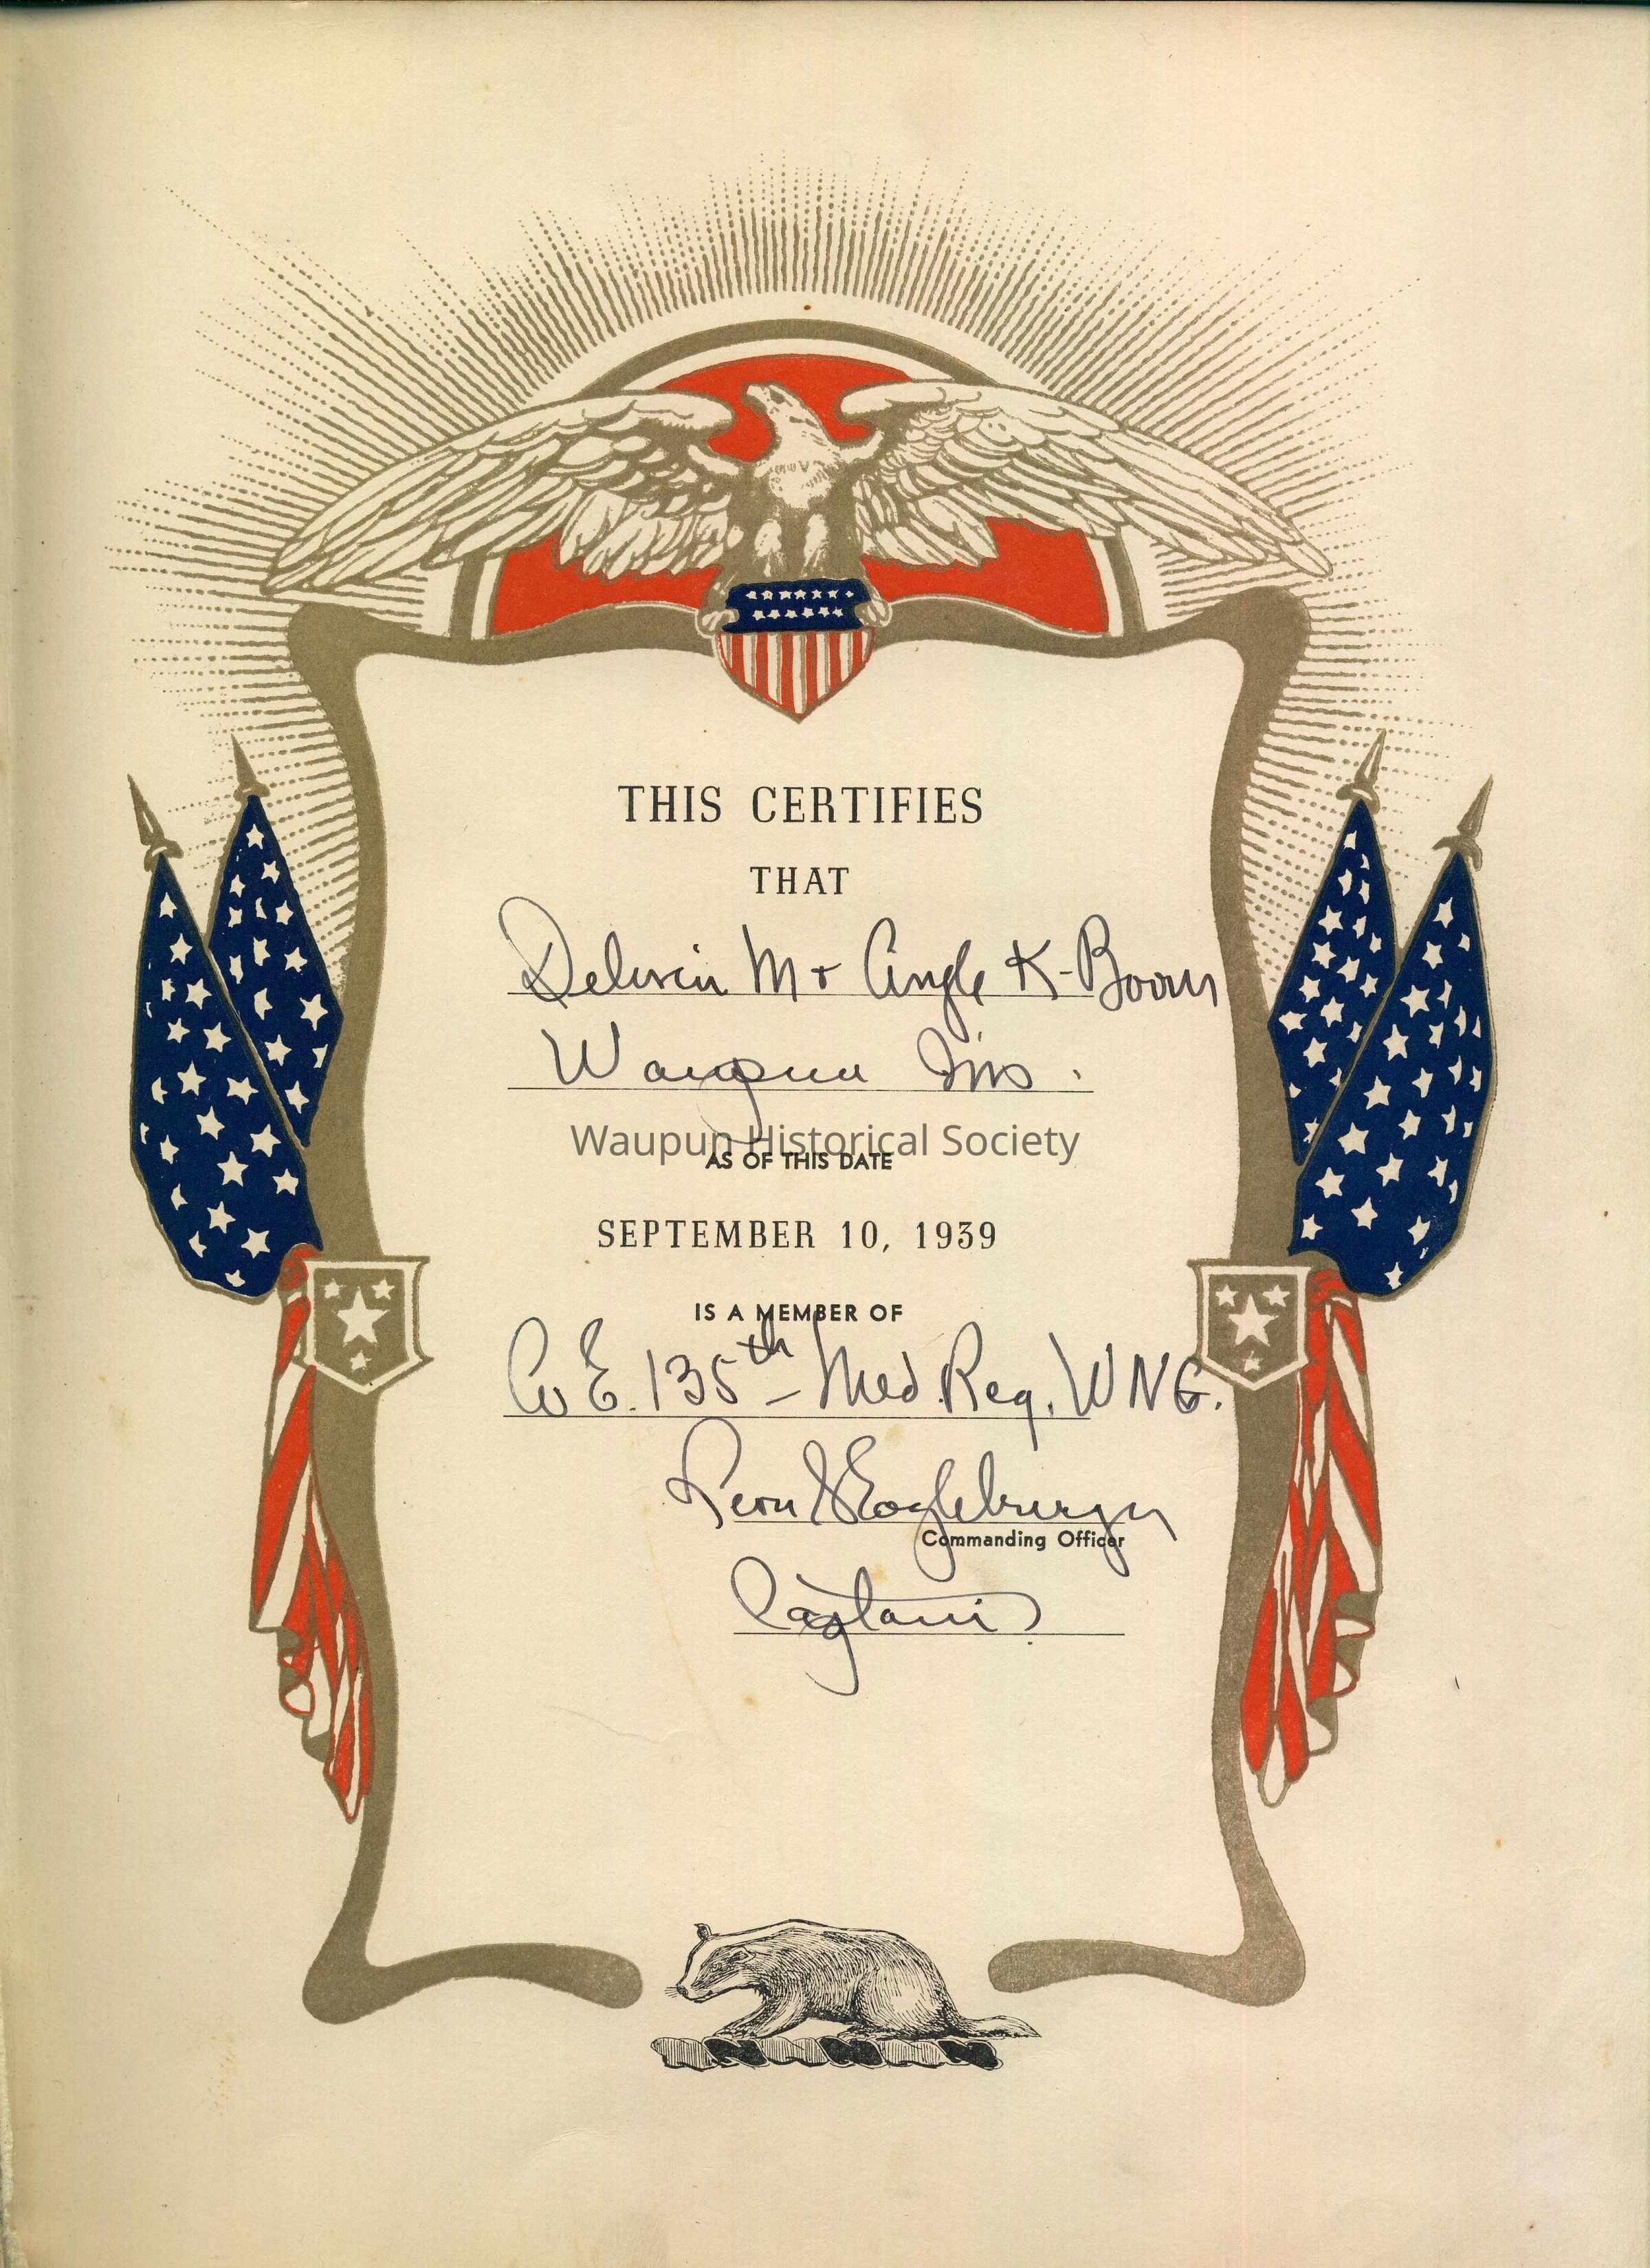 THIS CERTIFIES
THAT
Delwin M + Angle K- Boom
Waupun Wis.
Waupun Historical Society
AS OF THIS DATE
SEPTEMBER 10, 1939
IS A MEMBER OF
Co E. 135th Med. Reg. WNG.
Commanding Officer
Captain